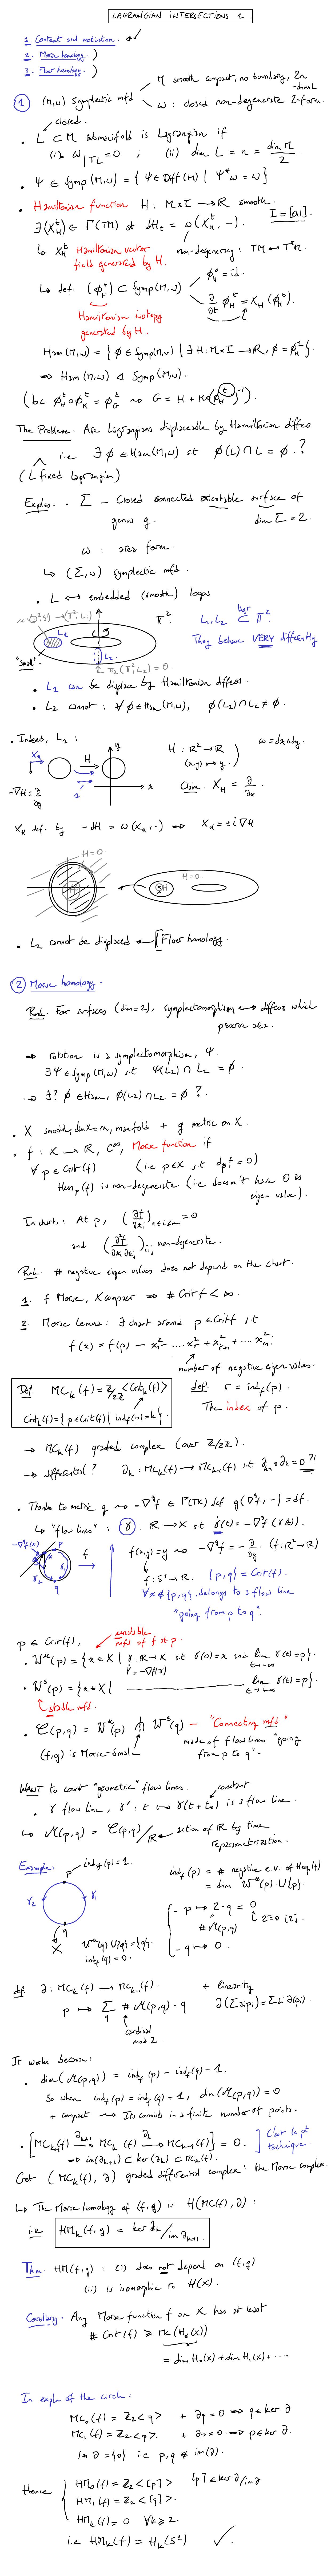 LAGRANGIAN INTERSECTIONS 1.
1. Context and motivation.
2. Morse homology.
3. Floer homology.
① (M,ω) symplectic mfd
M smooth compact, no boundary, 2n-dim'l
ω: closed non-degenerate 2-form.
closed.
• L ⊂ M submanifold is Lagrangian if
(i) ω|TL = 0 ; (ii) dim L = n = dim M / 2
• Ψ ∈ Symp(M,ω) = {Ψ ∈ Diff(M) | Ψ*ω = ω}
• Hamiltonian function H: M×I → ℝ smooth. I = [0,1].
∃(X_H^t) ∈ Γ(TM) st dH_t = ω(X_H^t, -).
↳ X_H^t Hamiltonian vector field generated by H.
non-degeneracy: TM ↔ T*M
↳ def. (φ_H^t) ⊂ Symp(M,ω)
φ_H^0 = id.
∂/∂t φ_H^t = X_H^t(φ_H^t).
Hamiltonian isotopy
generated by H.
Ham(M,ω) = {φ ∈ Symp(M,ω) | ∃ H: M×I → ℝ, φ = φ_H^1}.
⇒ Ham(M,ω) ◁ Symp(M,ω).
(bc φ_H^t ∘ φ_K^t = φ_G^t ⇝ G = H + K∘(φ_H^t)^-1).
The Problem. Are Lagrangians displaceable by Hamiltonian diffeos
i.e ∃ φ ∈ Ham(M,ω) st φ(L) ∩ L = ∅ ?
(L fixed Lagrangian)
Exples. • Σ - Closed connected orientable surface of
genus g. dim Σ = 2.
ω: area form.
↳ (Σ,ω) symplectic mfd.
• L ↔ embedded (smooth) loops
𝕋² L₁, L₂ ⊂ 𝕋².
They behave VERY differently
"small" L₁
L₂
π₂(𝕋², L₂) = 0.
• L₁ can be displaced by Hamiltonian diffeos.
• L₂ cannot: ∀ φ ∈ Ham(M,ω), φ(L₂) ∩ L₂ ≠ ∅.
• Indeed, L₁:
X_H H y x
H: ℝ² → ℝ
(x,y) ↦ y.
ω = dx∧dy.
-∇H = ∂/∂y
Claim. X_H = ∂/∂x.
X_H def. by -dH = ω(X_H, -) ⇒ X_H = ±i∇H
H=0. H=0.
• L₂ cannot be displaced ⇐ Floer homology.
② Morse homology.
Rmk. For surfaces (dim=2), symplectomorphism ⟷ diffeos which
preserve area.
⇒ rotation is a symplectomorphism, Ψ.
∃Ψ ∈ Symp(M,ω) s.t Ψ(L₂) ∩ L₂ = ∅
→ ∃? φ ∈ Ham, φ(L₂) ∩ L₂ = ∅ ?
• X smooth, dim X = m, manifold + g metric on X.
• f: X → ℝ, C^∞, Morse function if
∀ p ∈ Crit(f) (i.e p∈X s.t d_pf = 0)
Hess_p(f) is non-degenerate (i.e doesn't have 0 as
eigen value).
In charts: At p, (∂f/∂x_i)_{1≤i≤m} = 0
and (∂²f/∂x_i∂x_j)_{i,j} non-degenerate.
Rmk. # negative eigen values does not depend on the chart.
1. f Morse, X compact ⇒ # Crit f < ∞.
2. Morse Lemma: ∃ chart around p ∈ Crit f s.t
f(x) = f(p) - x₁² - ... - x_r² + x_{r+1}² + ... + x_m².
number of negative eigen values.
Def. MC_k(f) = ℤ/2ℤ <Crit_k(f)>
Crit_k(f) = {p ∈ Crit(f) | ind_f(p) = k}.
def. r = ind_f(p).
The index of p.
→ MC_k(f) graded complex (over ℤ/2ℤ).
→ differential? ∂_k: MC_k(f) → MC_{k-1}(f) s.t ∂_{k-1}∘∂_k = 0 ?!
• Thanks to metric g ⇝ -∇^g f ∈ Γ(TX) def g(∇^g f, -) = df.
↳ "flow lines": γ: ℝ → X st γ̇(t) = -∇^g f(γ(t)).
-∇^g f(x) p x γ₁ γ₂ q f
f(x,y) = y ⇝ -∇^g f = -∂/∂y. (f: ℝ² → ℝ)
f: S¹ → ℝ. {p,q} = Crit(f).
∀x ∉ {p,q}, belongs to a flow line
"going from p to q".
p ∈ Crit(f),
unstable
mfd of f at p.
• W^u(p) = {x ∈ X | γ: ℝ → X st γ(0) = x and lim_{t→-∞} γ(t) = p}.
γ̇ = -∇f(γ)
• W^s(p) = {x ∈ X | lim_{t→+∞} γ(t) = p}.
stable mfd.
• 𝒞(p,q) = W^u(p) ⋔ W^s(q) - "Connecting mfd"
(f,g) is Morse-Smale
made of flow lines "going
from p to q".
WANT to count "geometric" flow lines.
constant
• γ flow line, γ': t ↦ γ(t+t₀) is a flow line.
↳ ℳ(p,q) = 𝒞(p,q)/ℝ action of ℝ by time
reparametrization.
Example: p ind_f(p) = 1.
γ₂ γ₁
q
W^u(q) ∪ {q} = {q}.
ind_f(q) = 0.
ind_f(p) = # negative e.v. of Hess_p(f)
= dim W^u(p) ∪ {p}.
- p ↦ 2·q = 0
#ℳ(p,q) 2≡0 [2].
- q ↦ 0.
def. ∂: MC_k(f) → MC_{k-1}(f). + linearity
p ↦ Σ_q #ℳ(p,q)·q ∂(Σ a_i p_i) = Σ a_i ∂(p_i).
cardinal
mod 2.
It works because:
• dim(ℳ(p,q)) = ind_f(p) - ind_f(q) - 1.
So when ind_f(p) = ind_f(q) + 1, dim(ℳ(p,q)) = 0
+ compact ⇝ It consists in a finite number of points.
• [MC_{k+1}(f) →∂_{k+1} MC_k(f) →∂_k MC_{k-1}(f)] = 0.
⇒ im(∂_{k+1}) ⊂ ker(∂_k) ⊂ MC_k(f).
technique.
Get (MC_k(f), ∂) graded differential complex: the Morse complex.
↳ The Morse homology of (f,g) is H(MC(f),∂):
i.e HM_k(f,g) = ker ∂_k / im ∂_{k+1}.
Thm. HM(f,g): (i) does not depend on (f,g)
(ii) is isomorphic to H(X).
Corollary. Any Morse function f on X has at least
# Crit(f) ≥ rk(H_*(X))
= dim H₀(X) + dim H₁(X) + ...
In exple of the circle:
MC₀(f) = ℤ₂<q> + ∂q = 0 ⇒ q ∈ ker ∂
MC₁(f) = ℤ₂<p>. + ∂p = 0 ⇒ p ∈ ker ∂.
im ∂ = {0} i.e p,q ∉ im(∂).
Hence
HM₀(f) = ℤ₂<[p]> [p] ∈ ker ∂/im ∂
HM₁(f) = ℤ₂<[q]>.
HM_k(f) = 0 ∀k ≥ 2.
i.e HM_k(f) = H_k(S¹) ✓.